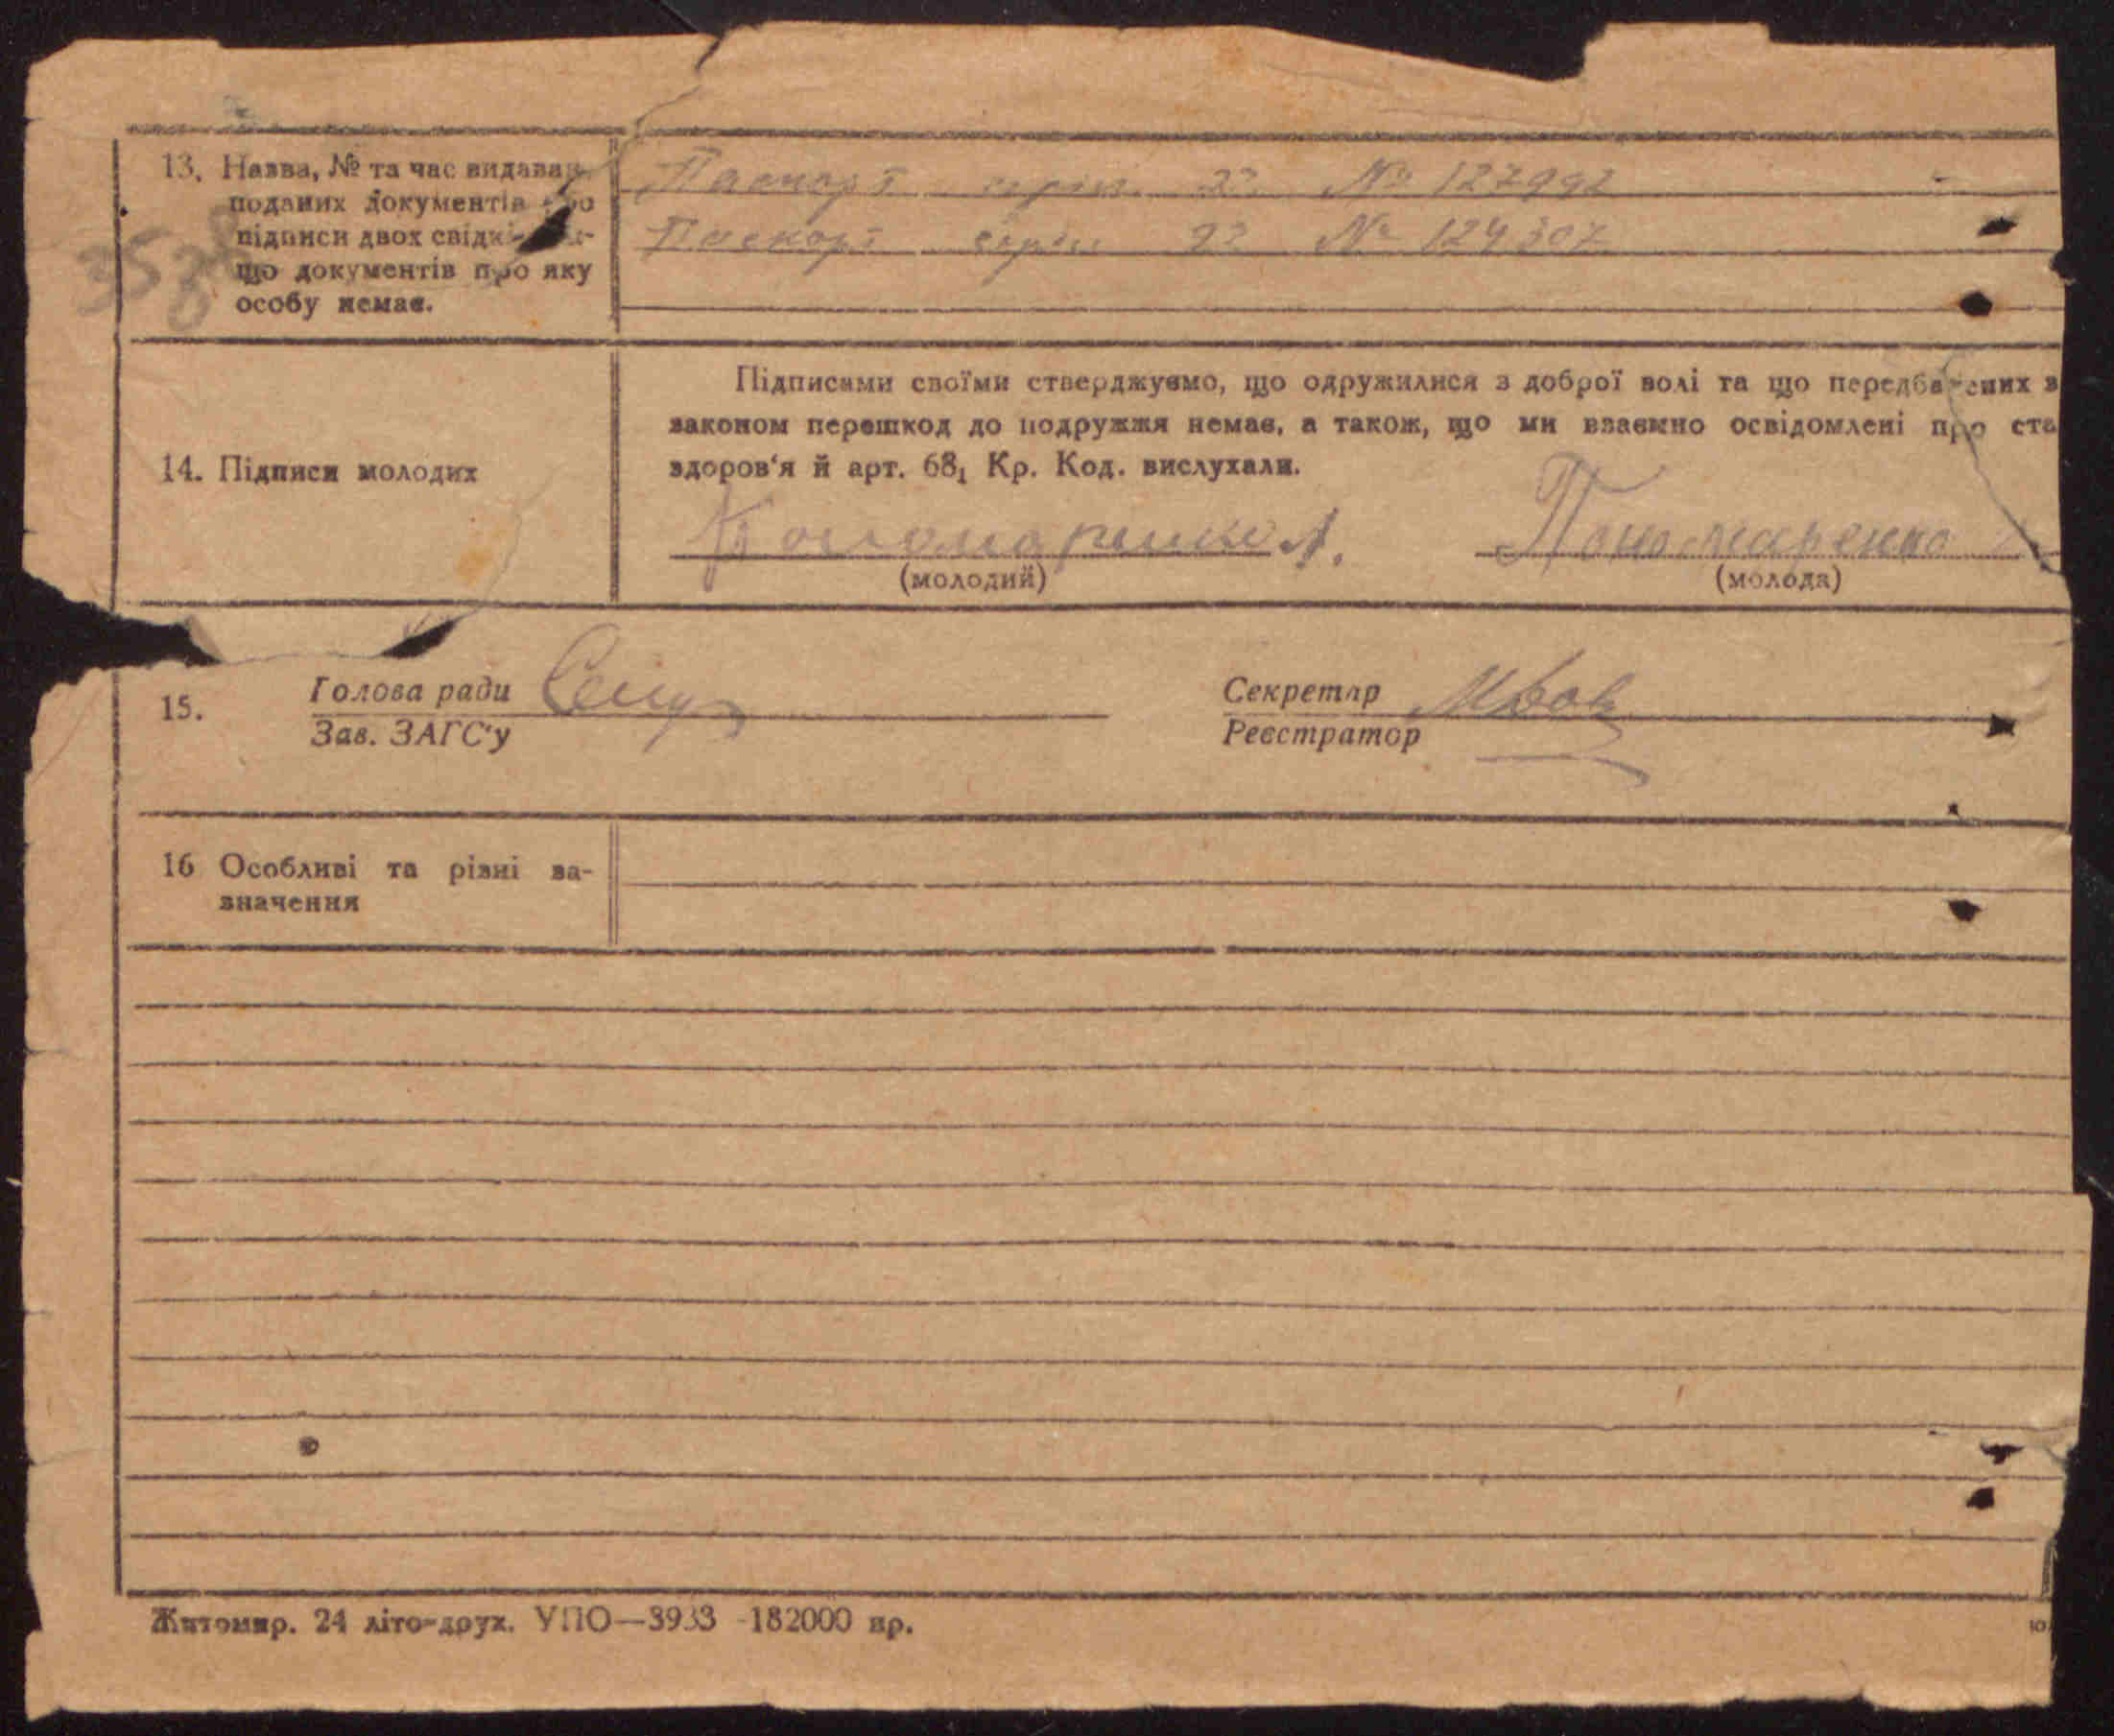 13. Назва, № та час видаван
поданих документів про
підписи двох свідків
що документів про яку
особу немає.
Паспорт серія 22 № 127992
Паспорт серія 22 № 124307
Підписами своїми стверджуємо, що одружилися з доброї волі та що передбачених з
законом перешкод до подружжя немає, а також, що ми взаємно освідомлені про ста
здоров'я й арт. 68₁ Кр. Код. вислухали.
14. Підписи молодих
Пономаренко А.
Пономаренко
(молодий)
(молода)
15.
Голова ради
Секретар
Зав. ЗАГС'у
Реєстратор
16 Особливі та різні за-
значення
Житомир. 24 літо-друк. УПО—3933 -182000 пр.